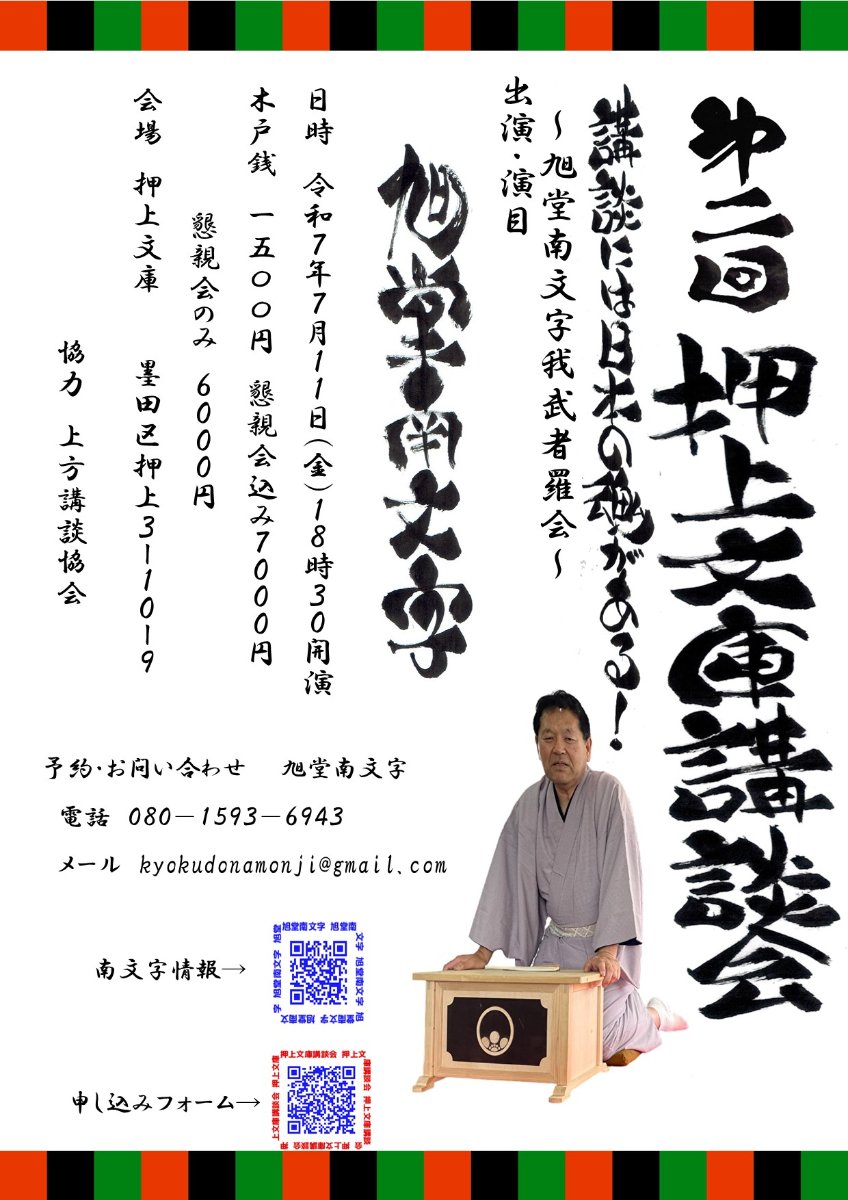 第二回 押上文庫講談会
講談には日本の魂がある！
～旭堂南文字我武者羅会～
出演・演目
旭堂南文字
日時 令和7年7月11日(金)18時30開演
木戸銭 一五〇〇円 懇親会込み7000円
懇親会のみ 6000円
会場 押上文庫 墨田区押上3-10-9
協力 上方講談協会
予約・お問い合わせ 旭堂南文字
電話 080－1593－6943
メール kyokudonamonji@gmail.com
南文字情報→
旭堂南文字 旭堂南文字 旭堂南文字 旭堂南文字 旭堂南文字
申し込みフォーム→
押上文庫講談会 押上文庫講談会 押上文庫講談会 押上文庫講談会